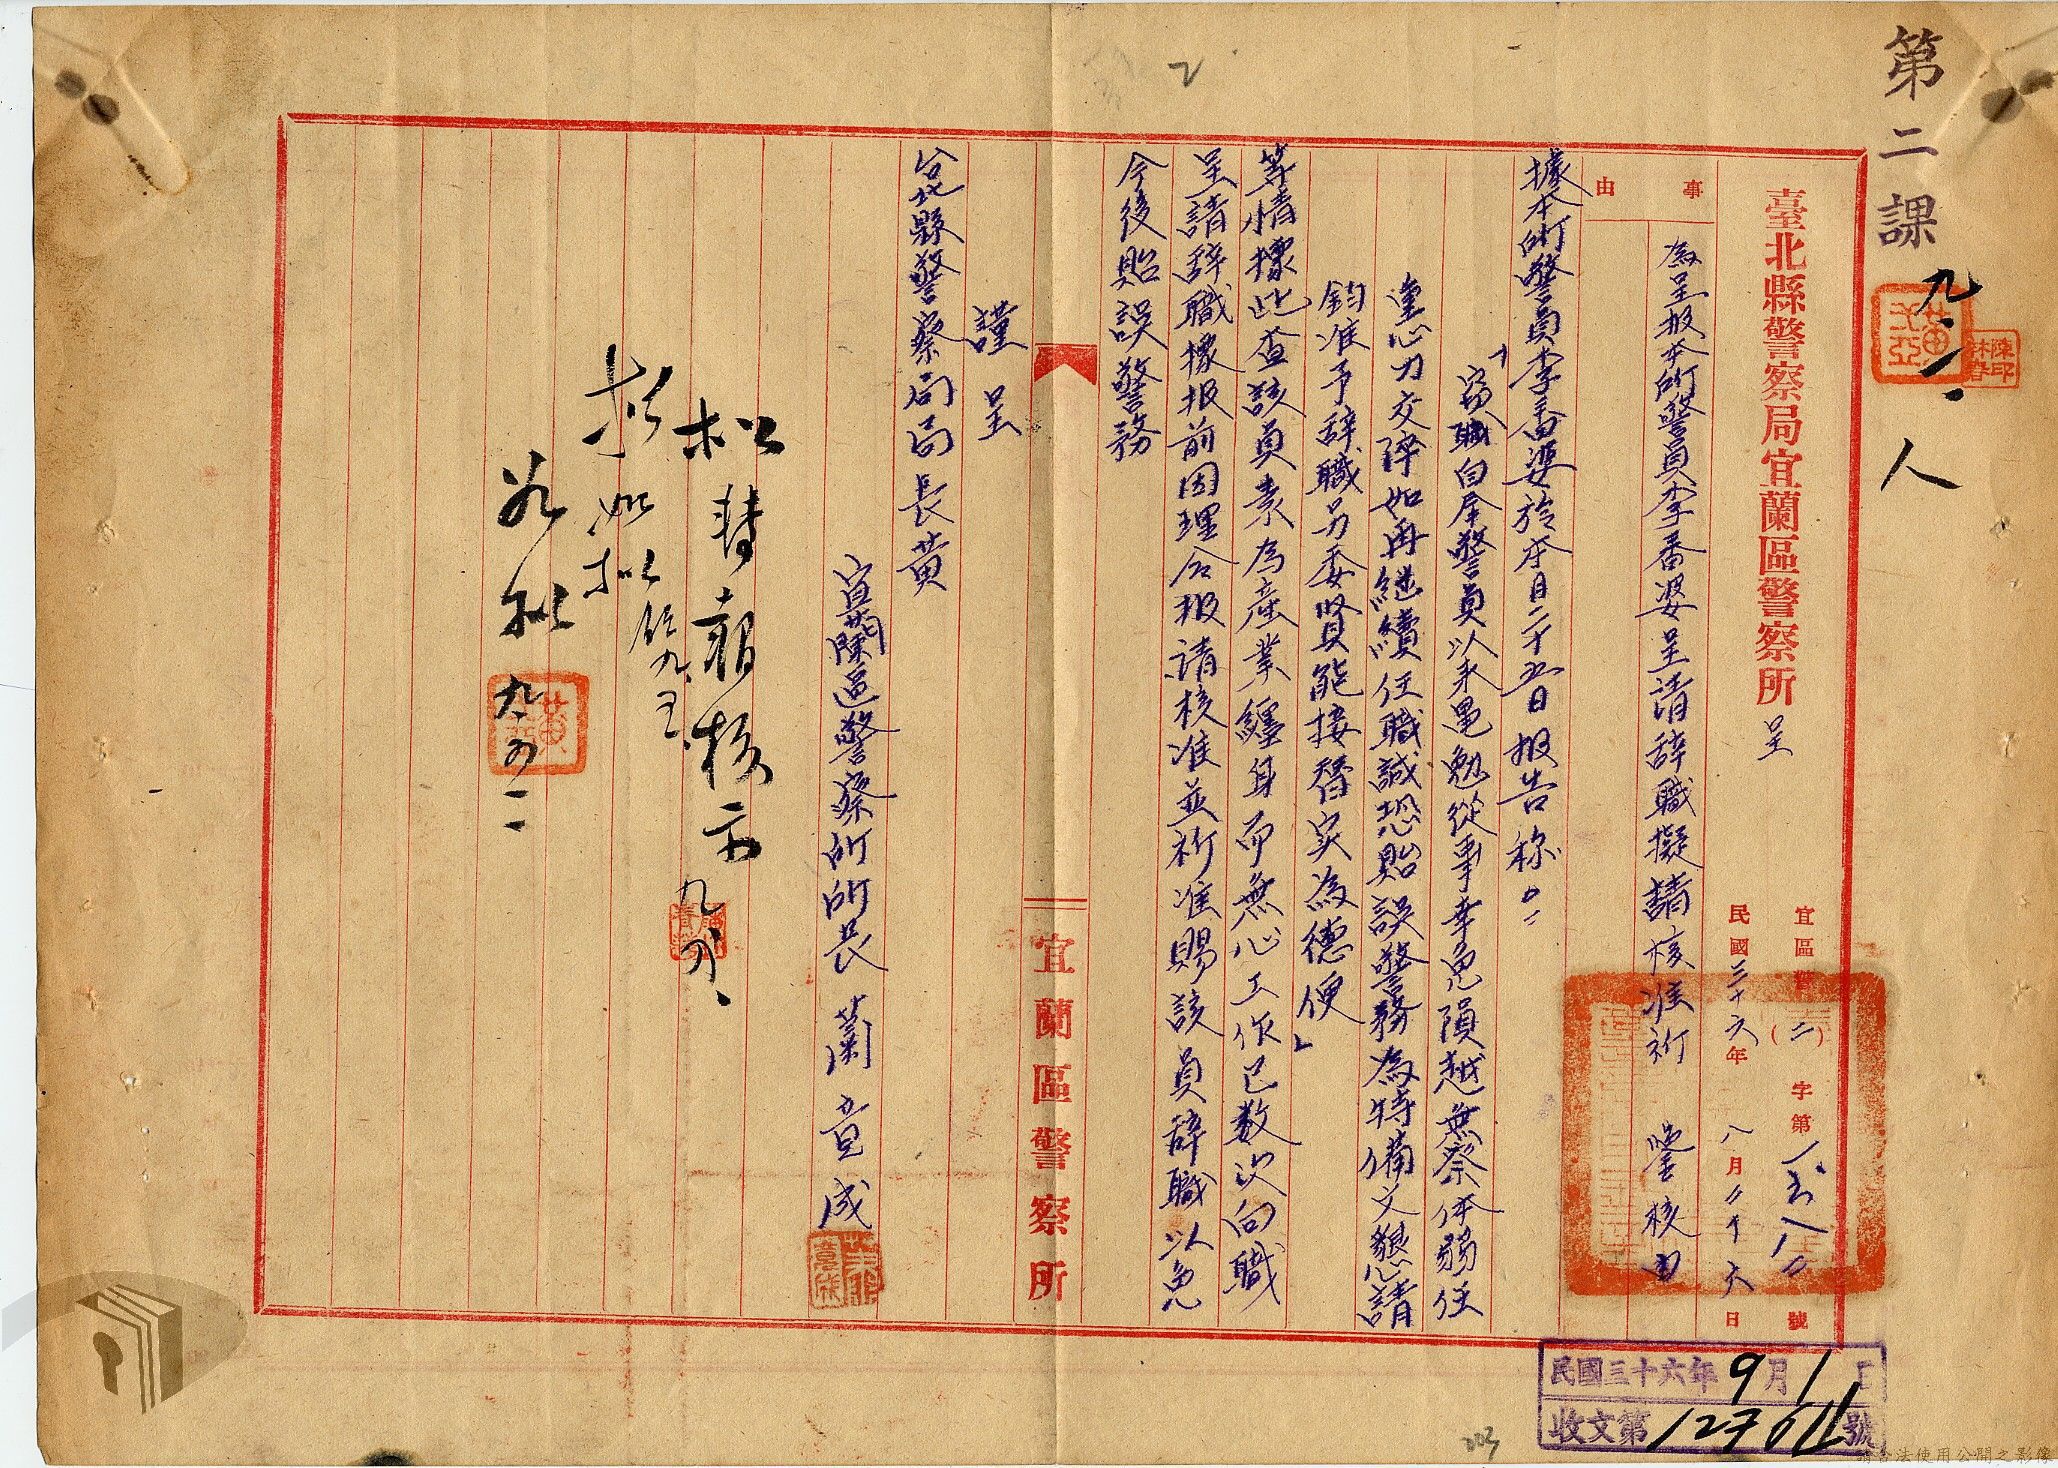 第二課
九.一.
人
陳邱林春
臺北縣警察局宜蘭區警察所 呈
宜區警(二)字第 號
民國三十六年八月二十六日
事由
為呈报本所警員李番婆呈请辞職擬請核准祈 鑒核由
據本所警員李番婆於本月二十五日报告称:
「窃職自奉警員以来黽勉從事幸免隕越無奈体弱任
重心力交瘁如再継續任職誠恐貽誤警務為特備文懇請
鈞准予辞職另委賢能接替实為德便」
等情據此查該員素為產業纏身而無心工作已数次向職
呈請辞職據报前因理合报请核准並祈准賜該員辞職以免
今後貽誤警務
謹呈
台北縣警察局局長黄
宜蘭區警察所所長 蕭意成
宜蘭區警察所
民國三十六年9月1日
收文第 號
003
請合法使用公開之影像